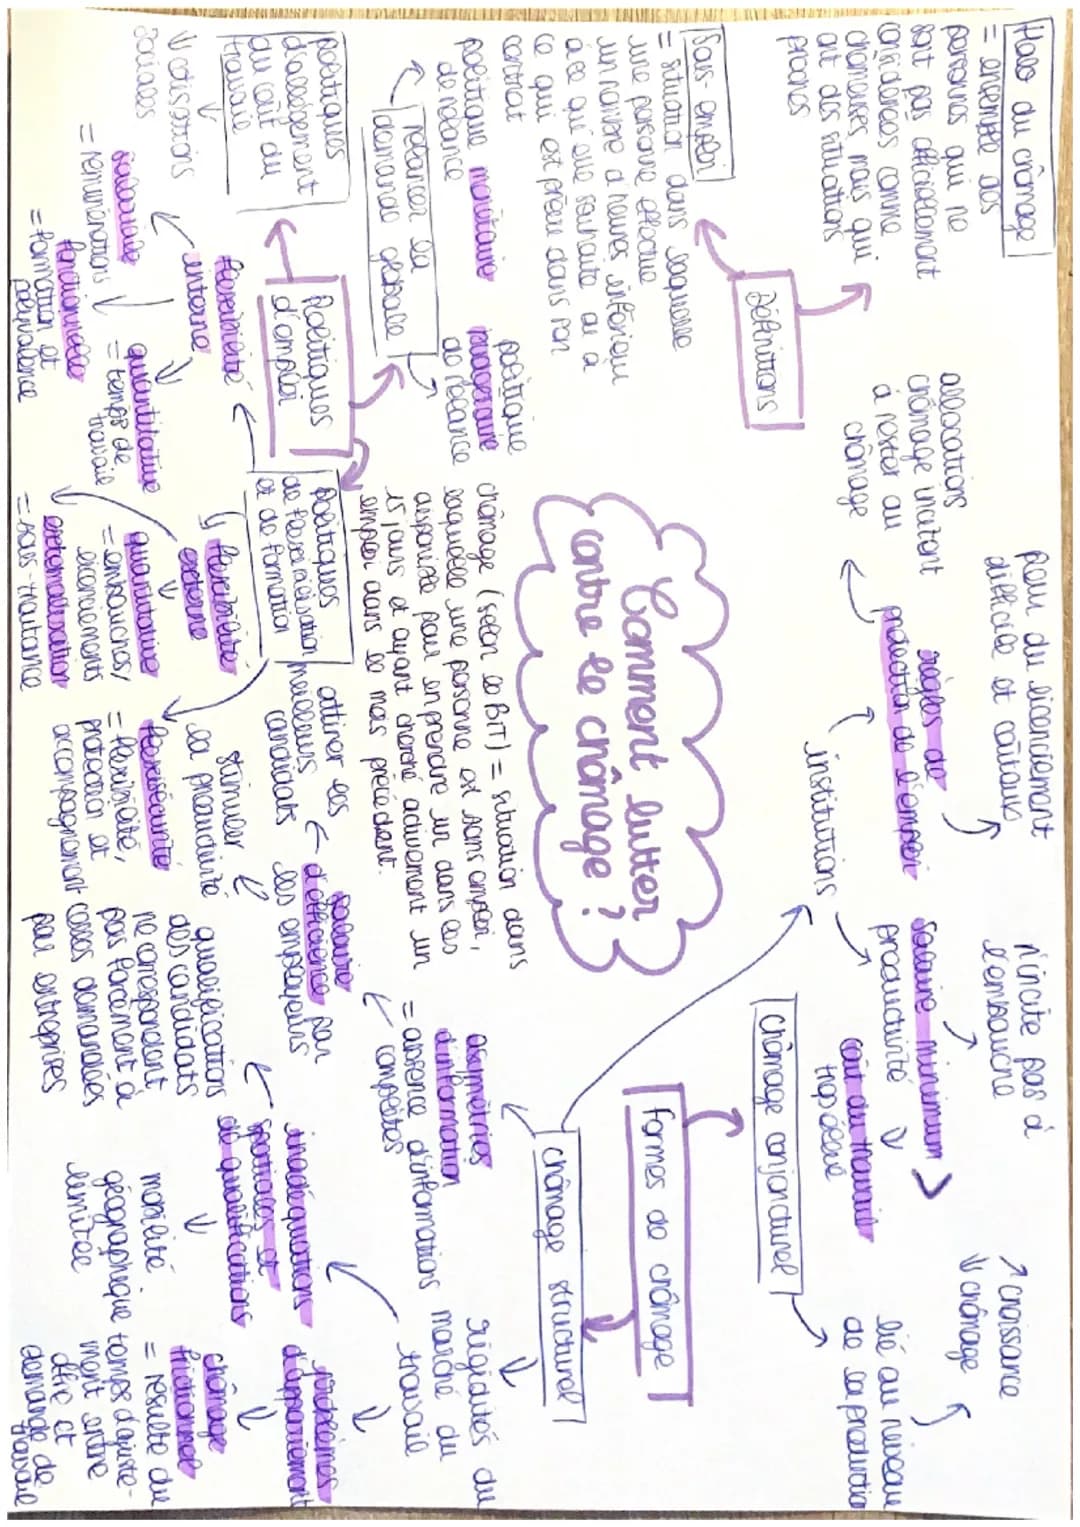 Halo du chômage
= ensemble des
personnes qui ne
sont pas officiellement
considérées comme
chômeurs mais qui
ont des situations
proches
Sous-emploi
= situation dans laquelle
une personne effectue
un nombre d'heures inférieur
à ce qu'elle souhaite ou à
ce qui est prévu dans son
contrat
Définitions
allocations
chômage incitant
à rester au
chômage
peur du licenciement
difficile et coûteux
règles de
protection de l'emploi
institutions
n'incite pas à
l'embauche
salaire minimum >
productivité ↓
coût du travail
trop élevé
↗ croissance
↓ chômage
lié au niveau
de la production
Chômage conjoncturel
formes de chômage
chômage structurel
Comment lutter
contre le chômage ?
chômage (selon le BIT) = situation dans
laquelle une personne est sans emploi,
disponible pour en prendre un dans les
15 jours et ayant cherché activement un
emploi dans le mois précédent.
politique monétaire
de relance
politique
budgétaire
de relance
relancer la
demande globale
Politiques
d'emploi
politiques
d'allègement
du coût du
travail
↓ cotisations
sociales
Politiques
de flexibilisation
et de formation
flexibilité
interne
salariale
= rémunérations
fonctionnelle
= formation et
polyvalence
quantitative
= temps de
travail
flexibilité
externe
quantitative
= embauches/
licenciements
externalisation
= sous-traitance
flexisécurité
= flexibilité,
protection et
accompagnement
asymétries
d'information
= absence d'informations
complètes
salaire
d'efficience par
les employeurs
attirer les
meilleurs
candidats
stimuler
la productivité
rigidités du
marché du
travail
inadéquations
spatiales et
de qualifications
qualifications
des candidats
ne correspondent
pas forcément à
celles demandées
par entreprises
mobilité
géographique
limitée
problèmes
d'appariement
chômage
frictionnel
= résulte du
temps d'ajuste-
ment entre
offre et
demande de
travail